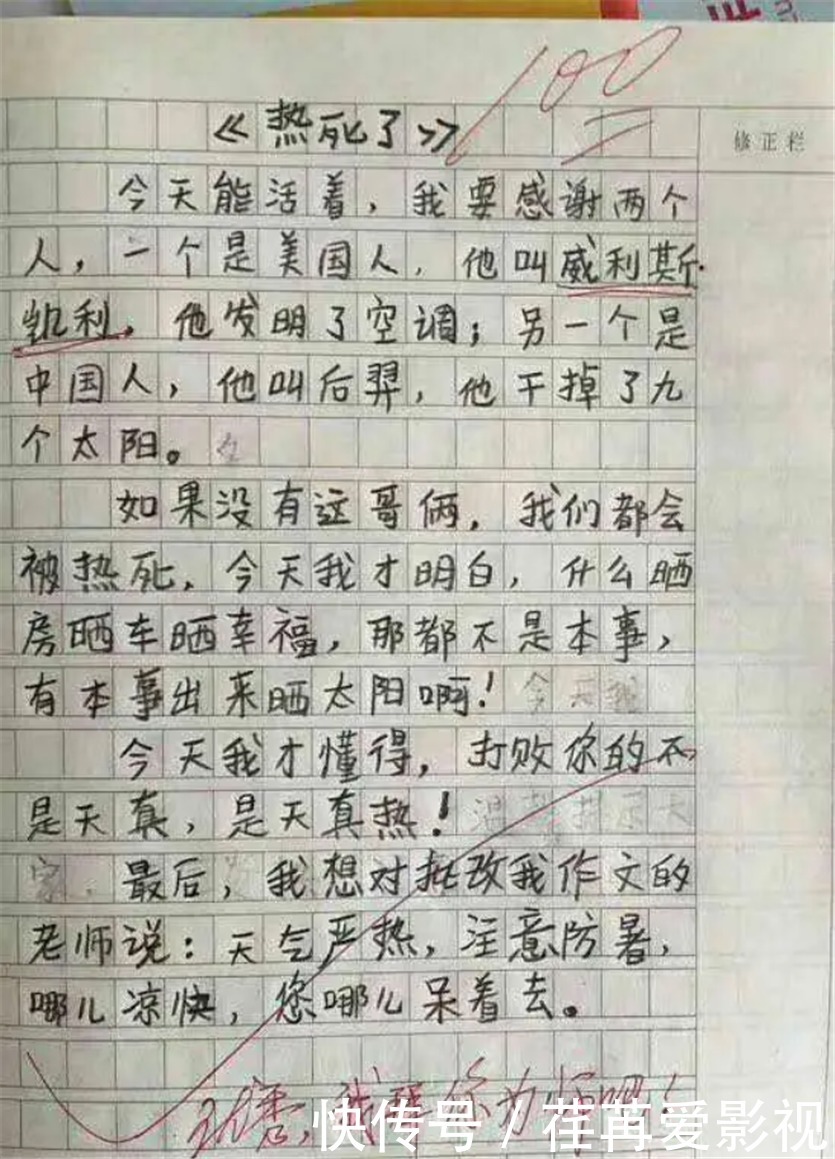 100
《热死了》
修正栏
今天能活着，我要感谢两个
人，一个是美国人，他叫威利斯·
凯利，他发明了空调；另一个是
中国人，他叫后羿，他干掉了九
个太阳。
如果没有这哥俩，我们都会
被热死，今天我才明白，什么晒
房晒车晒幸福，那都不是本事，
有本事出来晒太阳啊！
今天我才懂得，打败你的不
是天真，是天真热！
最后，我想对批改我作文的
老师说：天气严热，注意防暑，
哪儿凉快，您哪儿呆着去。
快传号 / 荏苒爱影视